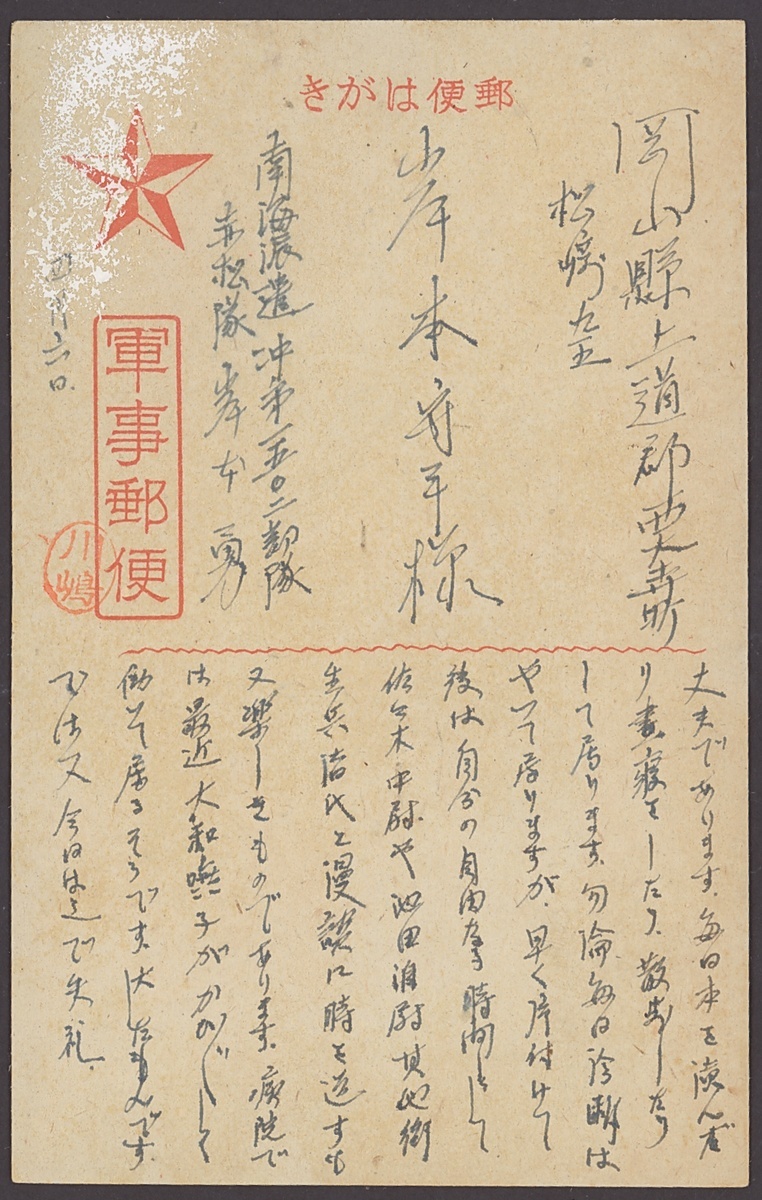 郵便はがき
岡山縣上道郡西大寺町
松崎九五
岸本守平様
南海派遣冲第一五〇二部隊
赤松隊 岸本勇
四月六日
軍事郵便
川嶋
丈夫であります。毎日本を讀んだ
り晝寢をしたり、散歩したり
して居ります。勿論毎日診斷は
やって居りますが、早く片付けて
後は自分の自由な時間として
佐々木中尉や池田准尉其他衛
生兵諸氏と漫談に時を過すも
又樂しきものであります。病院で
は最近大和撫子がかひ〲しく
働いて居るそうです。大したもんです。
では又 今日は之で失礼。